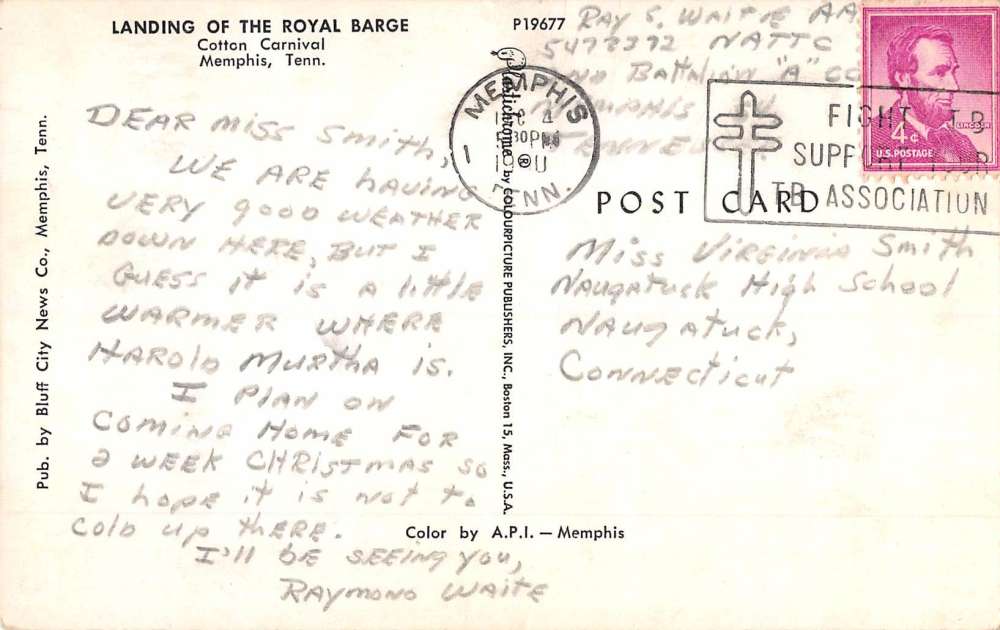 LANDING OF THE ROYAL BARGE
Cotton Carnival
Memphis, Tenn.
P19677
RAY S. WAITE AA
5477372 NATTC
BATTALION "A" CO
MEMPHIS
TENNESSEE
MEMPHIS
TENN.
FIGHT TB
SUPPORT YOUR
TB ASSOCIATION
LINCOLN
4¢
U.S. POSTAGE
DEAR Miss Smith,
WE ARE HAVING
VERY GOOD WEATHER
DOWN HERE, BUT I
GUESS it is A little
WARMER WHERE
HAROLD MURTHA is.
I PLAN ON
COMING HOME FOR
2 WEEK CHRISTMAS SO
I hope it is not to
cold up tHERE.
I'll BE SEEING you,
RAYMOND WAITE
POST CARD
Miss Virginia Smith
Naugatuck High School
NAUGATUCK,
CONNECTICUT
Pub. by Bluff City News Co., Memphis, Tenn.
Plastichrome ® by COLOURPICTURE PUBLISHERS, INC., Boston 15, Mass., U.S.A.
Color by A.P.I. — Memphis